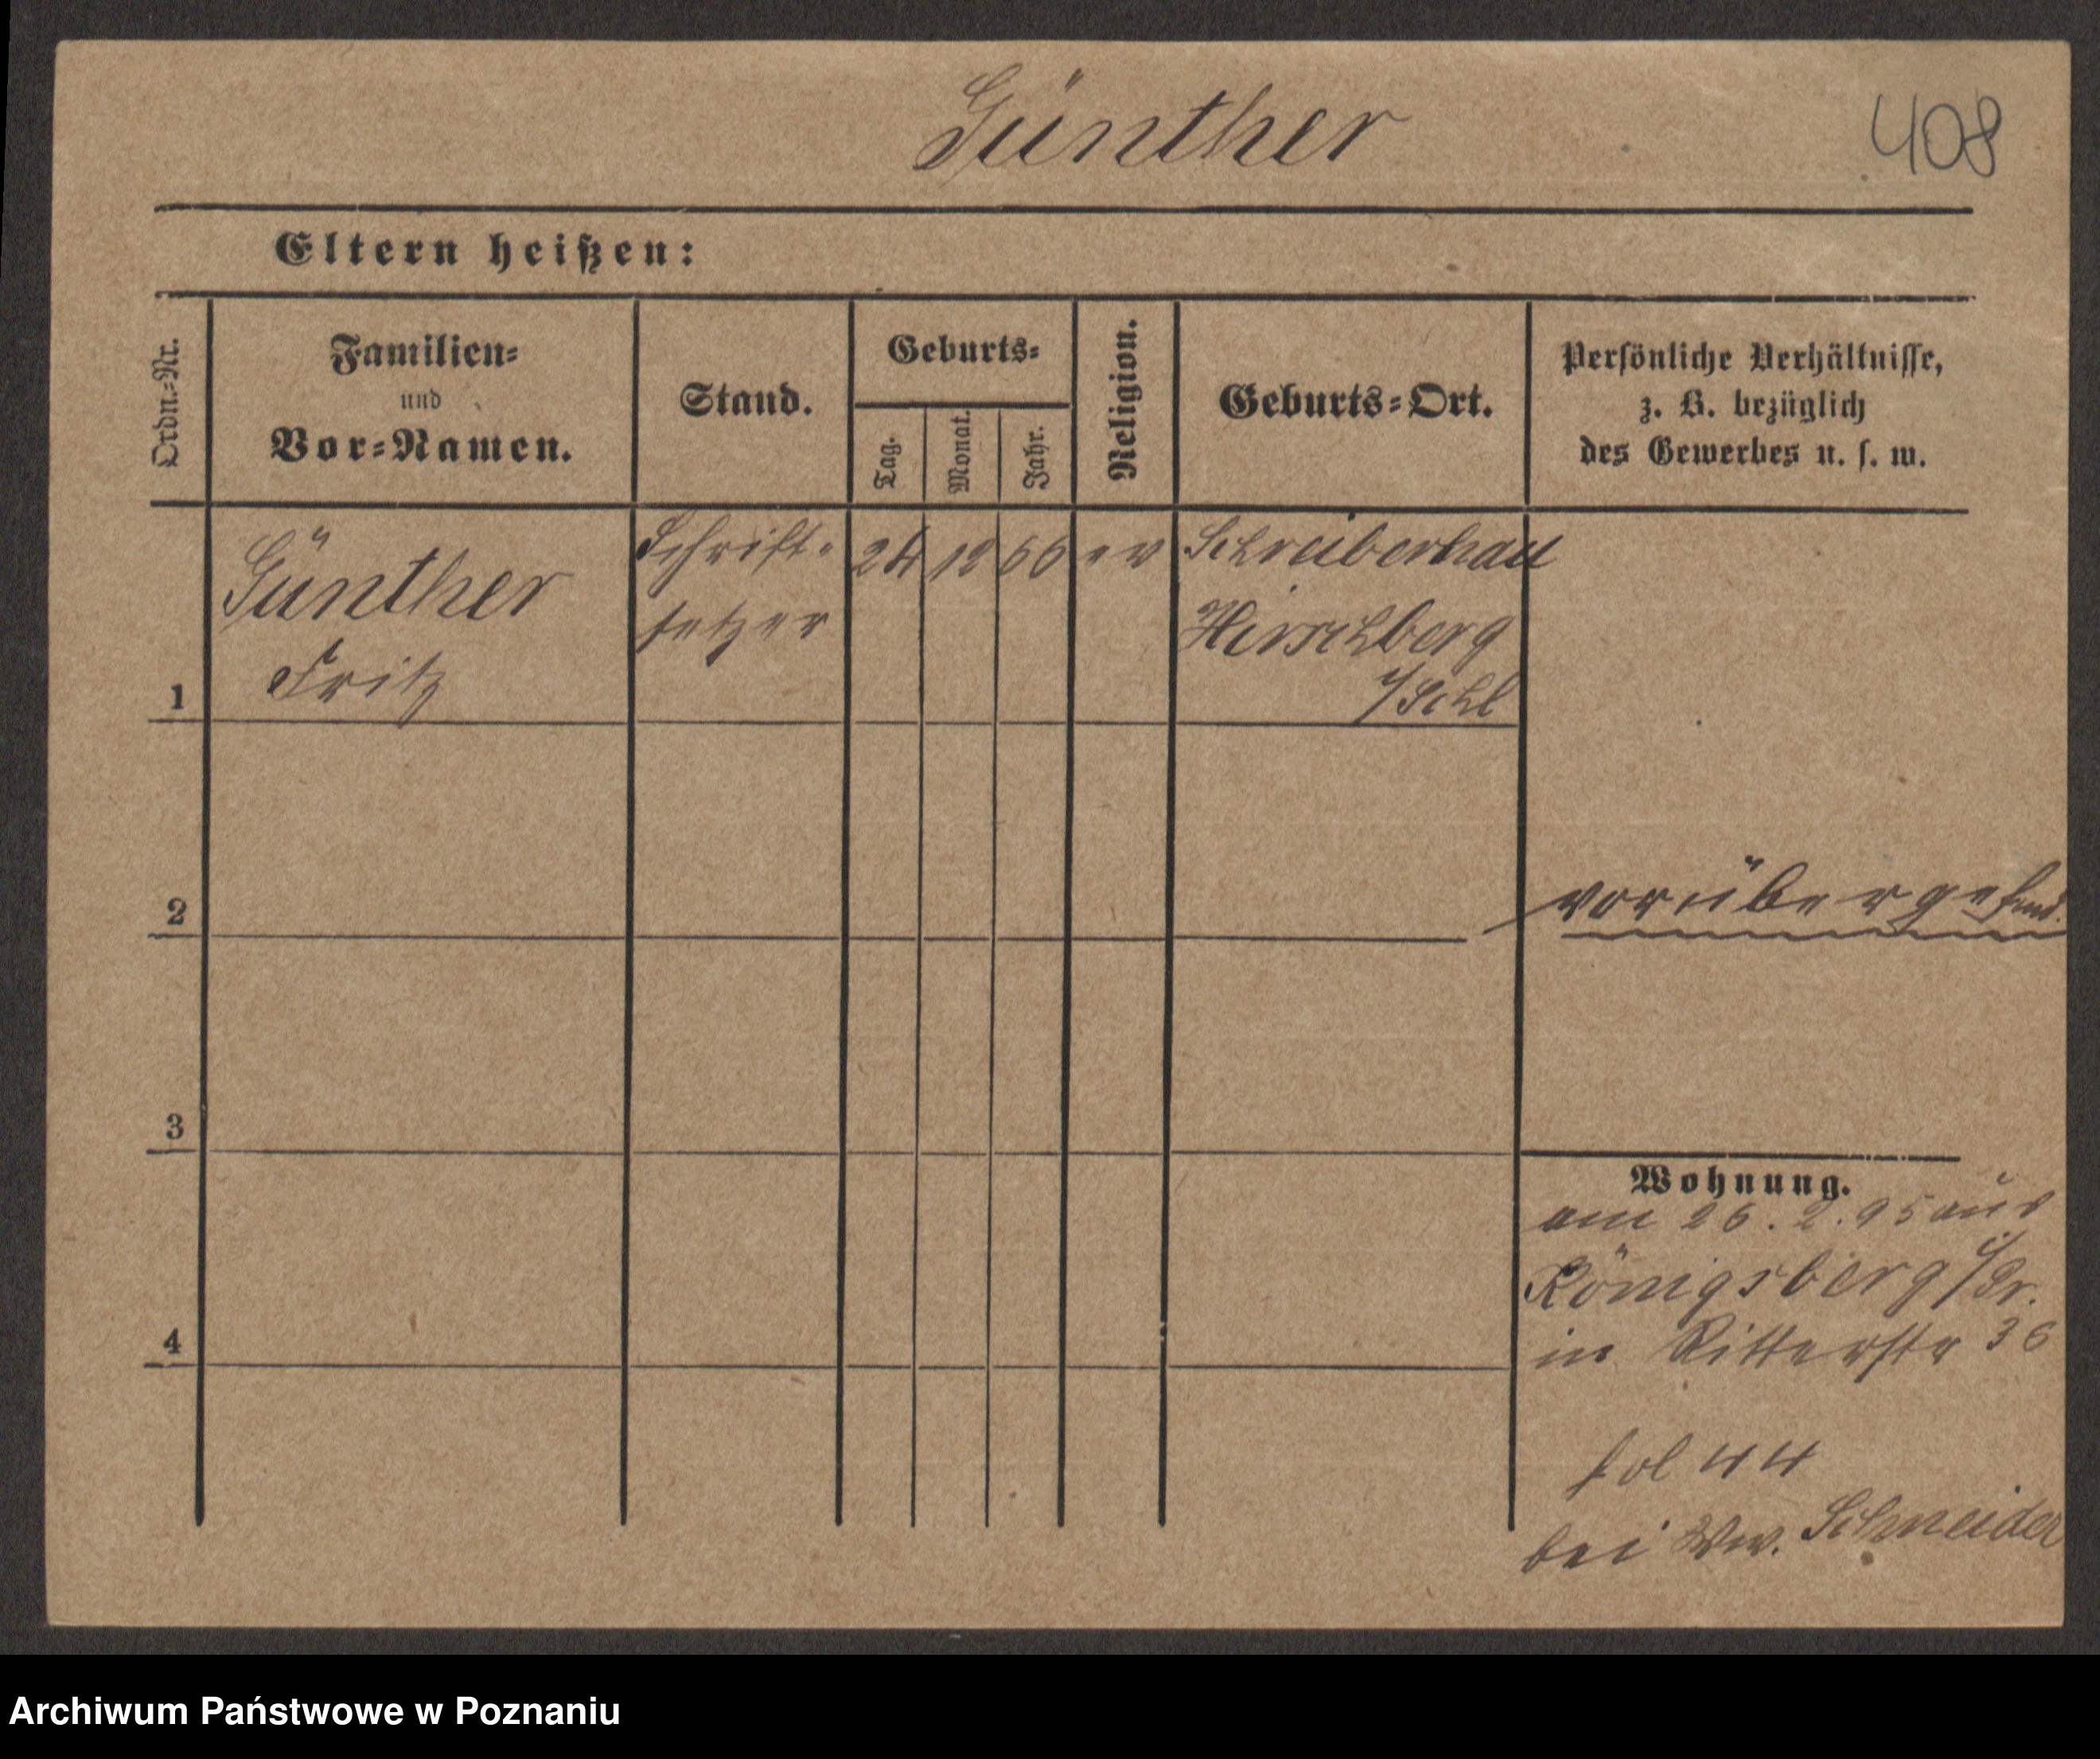 Günther
408
Eltern heißen:
Ordn.=Nr.
Familien=
und
Vor=Namen.
Stand.
Geburts=
Tag.
Monat.
Jahr.
Religion.
Geburts=Ort.
Persönliche Verhältnisse,
z. B. bezüglich
des Gewerbes u. s. w.
1
Günther
Fritz
Schrift-
setzer
24 12 66 ev
Schreiberhau
Hirschberg
i/Schl
2
vorübergehend.
3
4
Wohnung.
am 26. 2. 95 aus
Königsberg i/Pr.
in Ritterstr 36
fol 44
bei Ww. Schneider
Archiwum Państwowe w Poznaniu